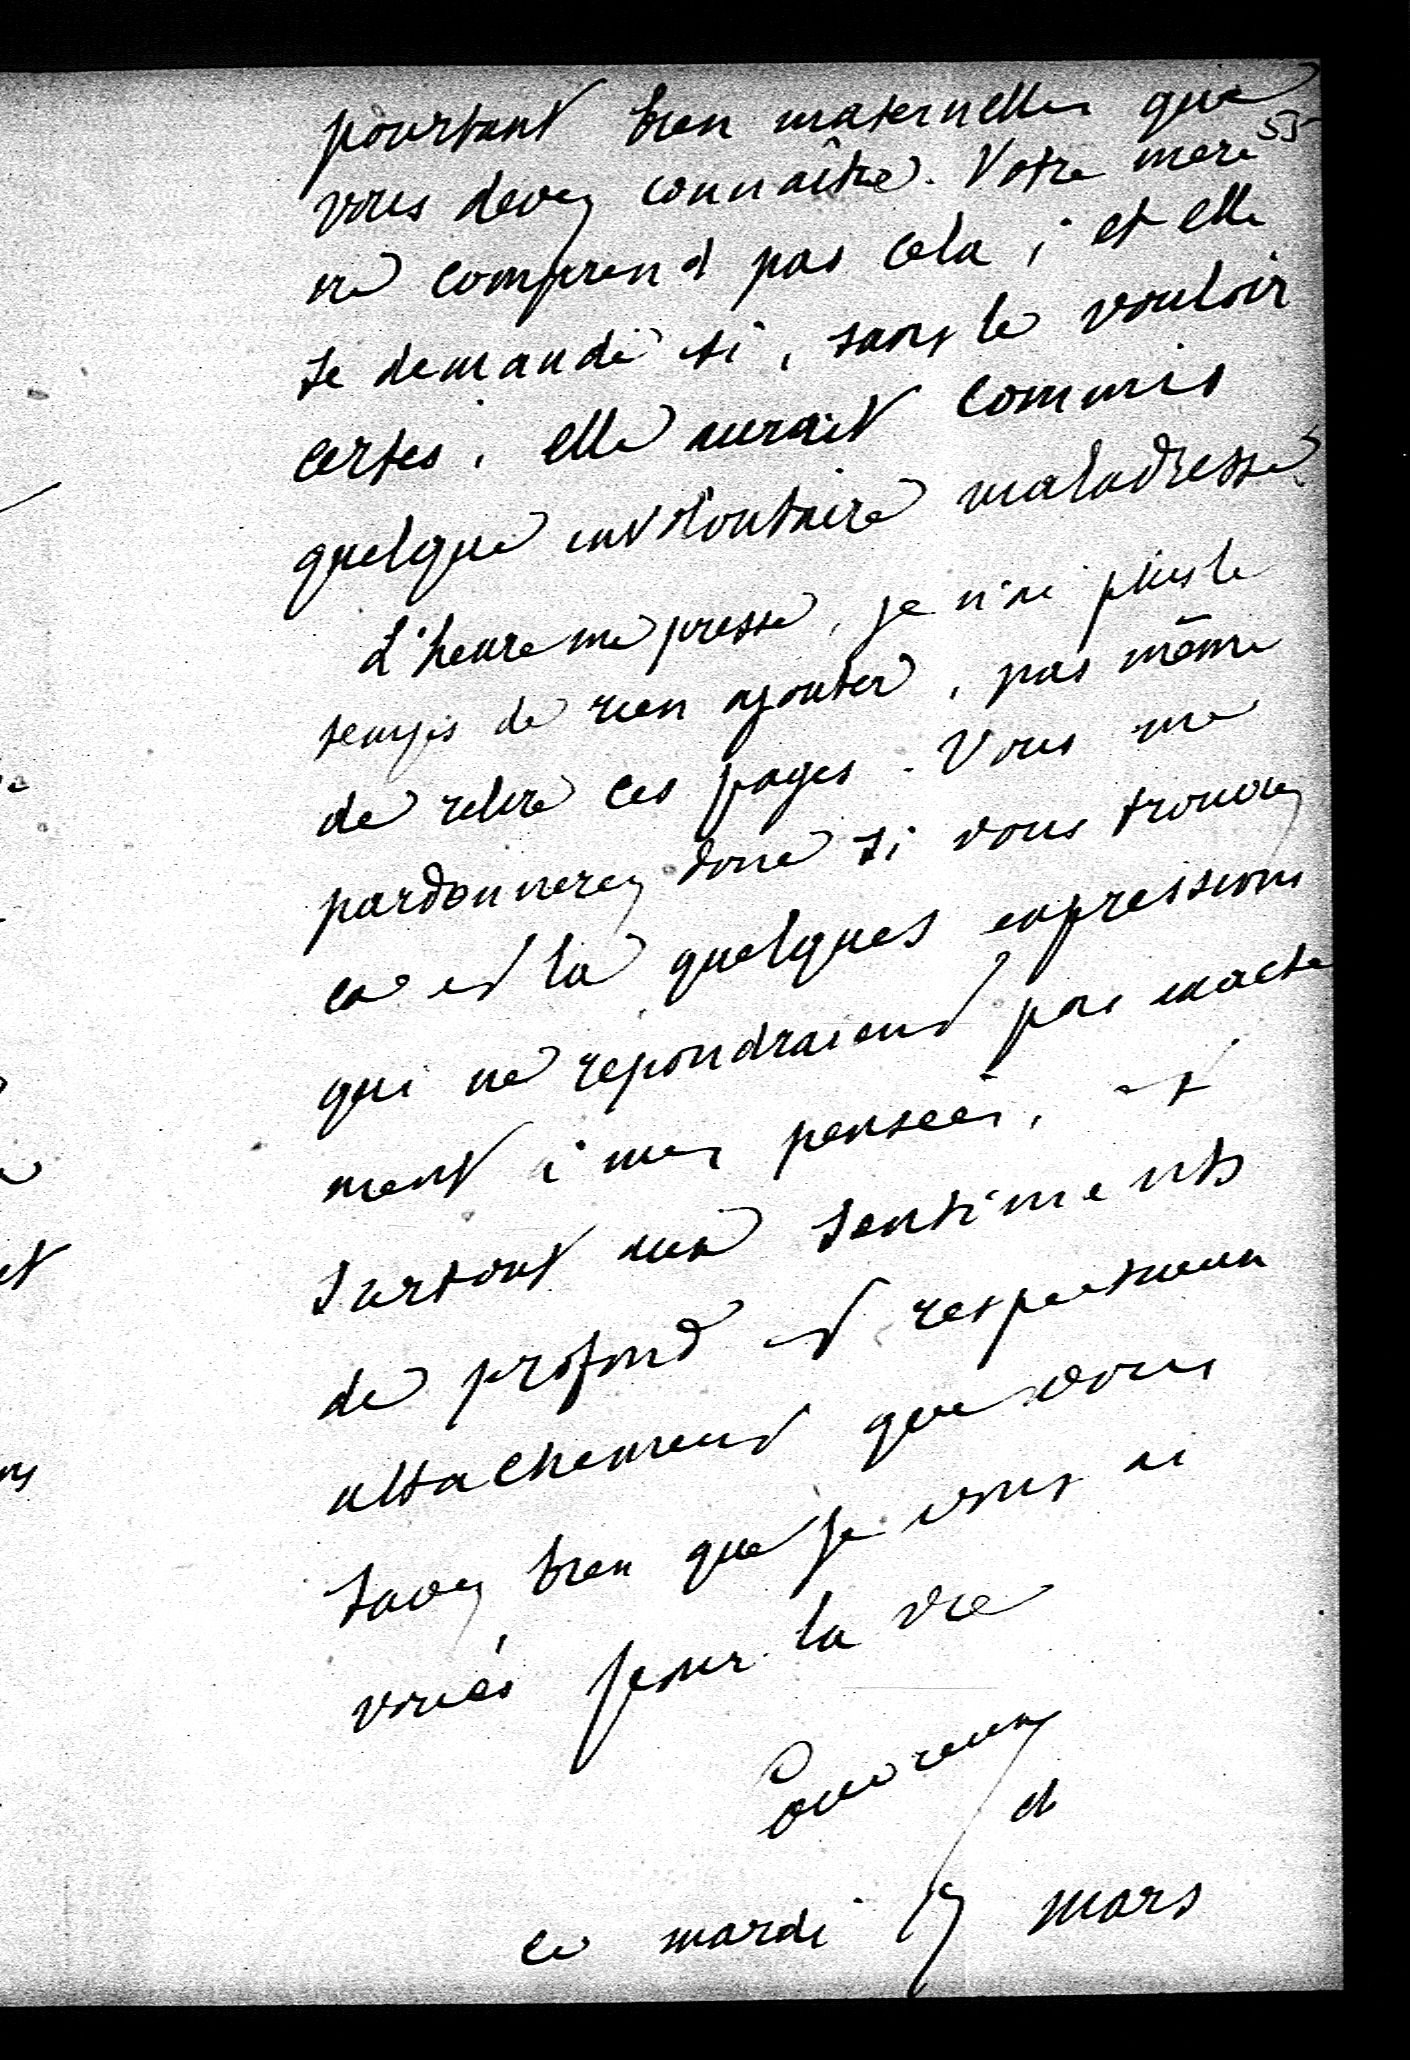 pourtant bien maternelles que
55
vous devez connaître. Votre mère
ne comprend pas cela ; et elle
se demande si, sans le vouloir
certes, elle aurait commis
quelque involontaire maladresse.
L'heure me presse, je n'ai plus le
temps de rien ajouter, pas même
de relire ces pages. Vous me
pardonnerez donc si vous trouvez
ça et là quelques expressions
qui ne répondraient pas exacte
ment à mes pensées, et
surtout aux sentiments
de profond et respectueux
attachement que vous
savez bien que je vous ai
voués pour la vie
et
ce mardi 17 mars